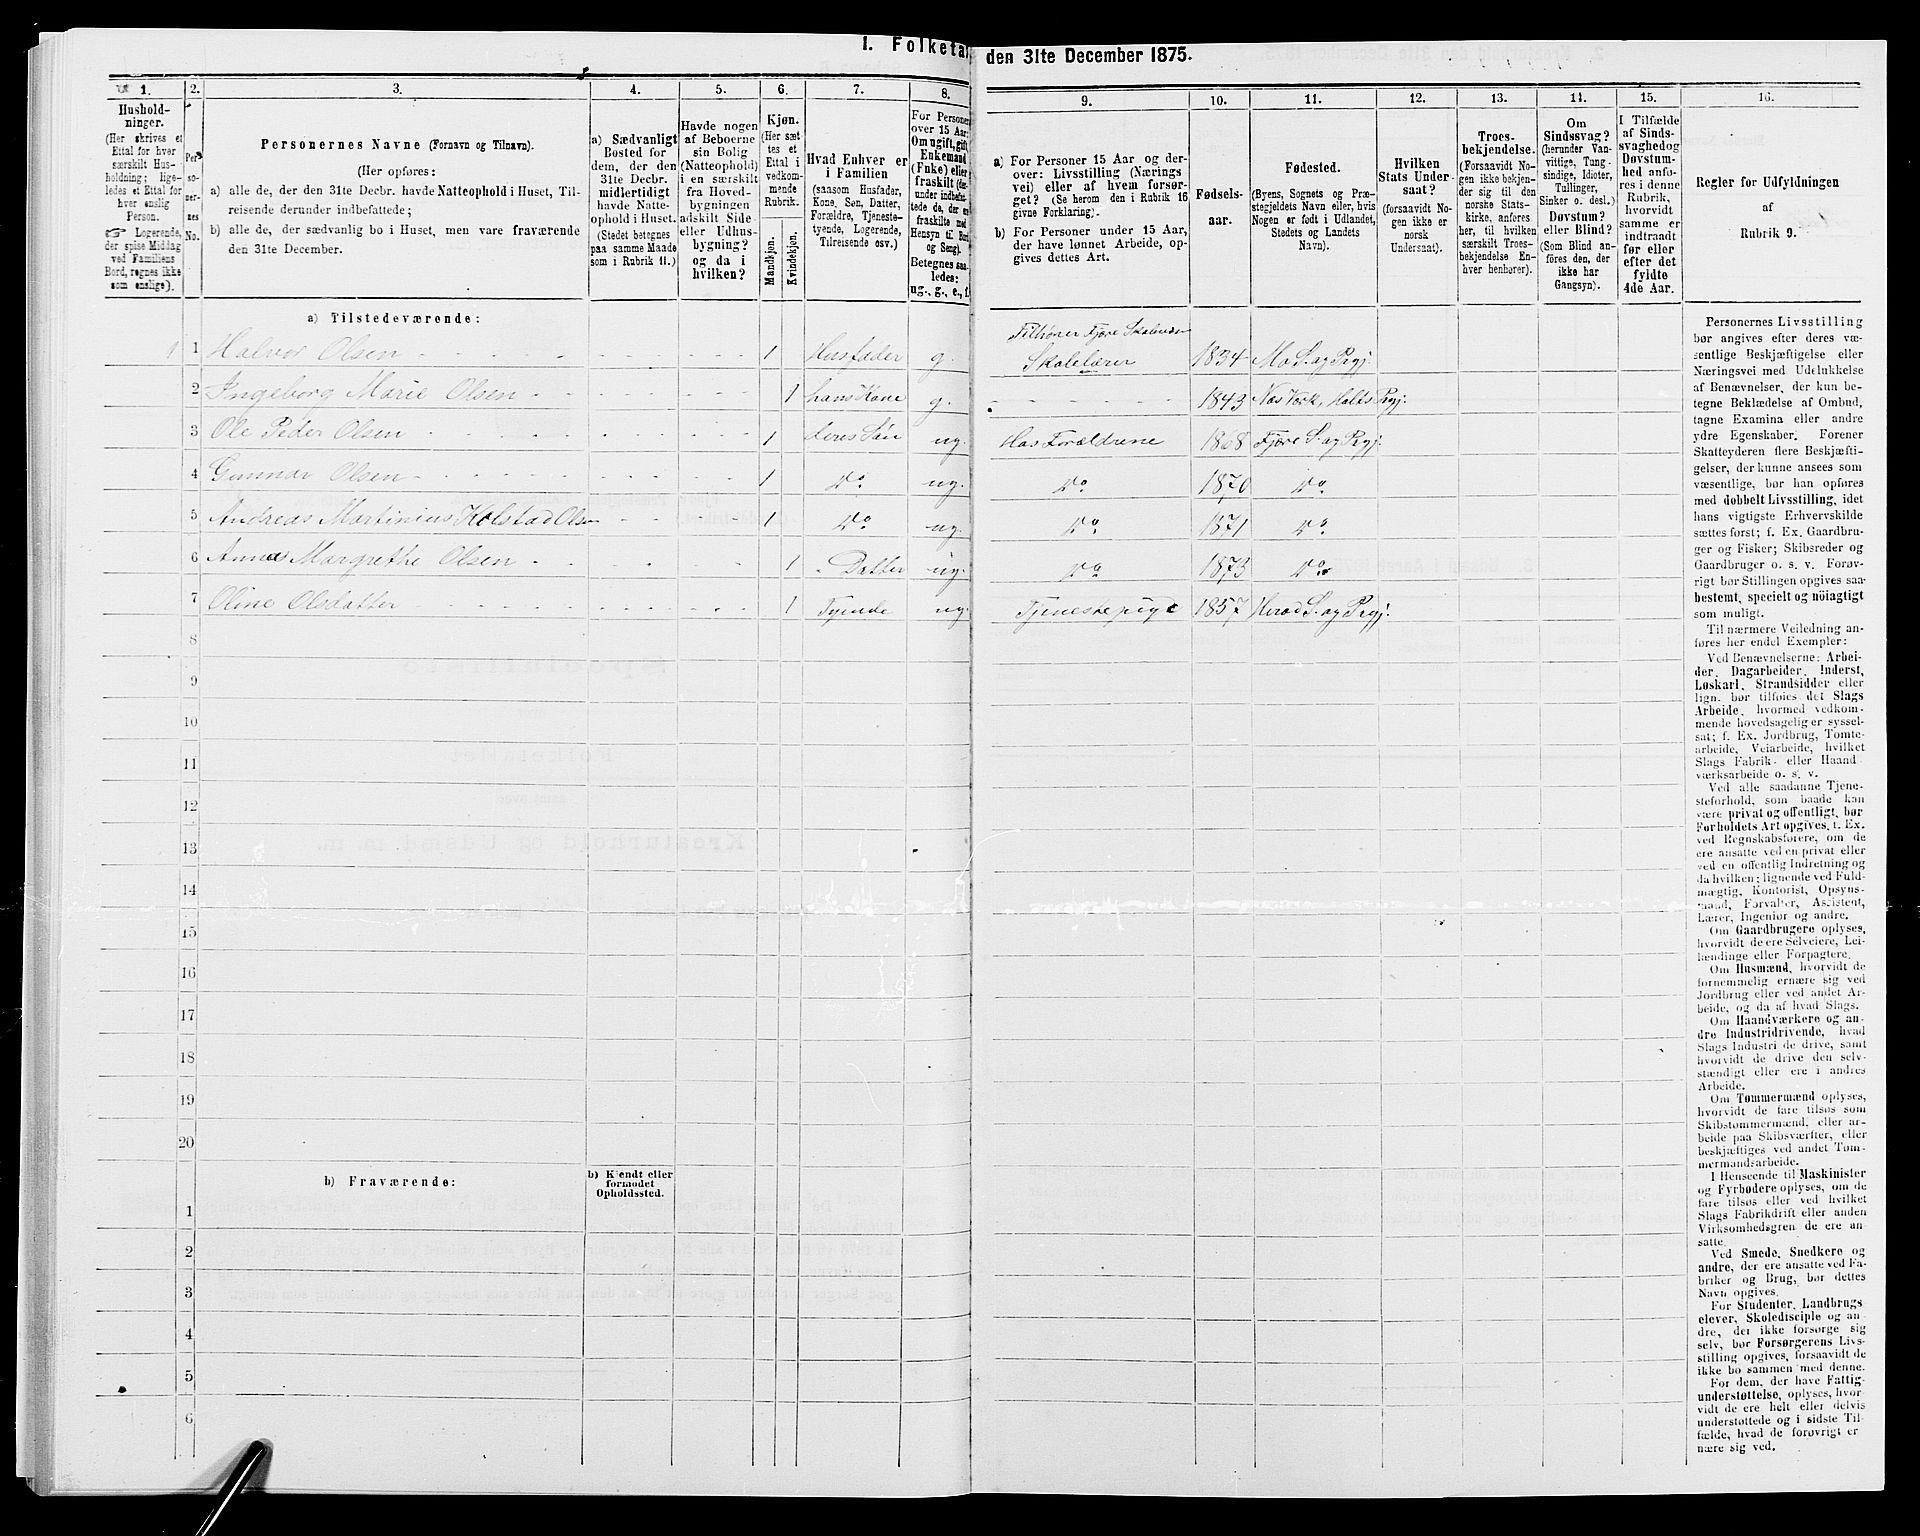 1. Folketal den 31te December 1875.
1. 2. 3. 4. 5. 6. 7. 8. 9. 10. 11. 12. 13. 14. 15. 16.
Hushold-
ninger.
(Her skrives et
Ettal for hver
særskilt Hus-
holdning; lige-
ledes et Ettal for
hver enslig
Person.
☞ Logerende,
der spise Middag
ved Familiens
Bord, regnes ikke
som enslige).
Per-
so-
ner-
nes
No.
Personernes Navne (Fornavn og Tilnavn).
(Her opføres:
a) alle de, der den 31te Decbr. havde Natteophold i Huset, Til-
reisende derunder indbefattede;
b) alle de, der sædvanlig bo i Huset, men vare fraværende
den 31te December.
a) Sædvanligt
Bosted for
dem, der den
31te Decbr.
midlertidigt
havde Natte-
ophold i Huset.
(Stedet betegnes
paa samme Maade
som i Rubrik 11.)
Havde nogen
af Beboerne
sin Bolig
(Natteophold)
i en særskilt
fra Hoved-
bygningen
adskilt Side-
eller Udhus-
bygning?
og da i
hvilken?
Kjøn.
(Her sæt-
tes et
Ettal i
vedkom-
mende
Rubrik.
Mandkjøn.
Kvindekjøn.
Hvad Enhver er
i Familien
(saasom Husfader,
Kone, Søn, Datter,
Forældre, Tjeneste-
tyende, Logerende,
Tilreisende osv.)
For Personer
over 15 Aar:
Om ugift, gift,
Enkemand
(Enke) eller
fraskilt (der-
under indbefat-
tede de, der er
fraskilte med
Hensyn til Bord
og Seng).
Betegnes saa-
ledes:
ug., g., e., f.
a) For Personer 15 Aar og der-
over: Livsstilling (Nærings
vei) eller af hvem forsør-
get? (Se herom den i Rubrik 16
givne Forklaring).
b) For Personer under 15 Aar,
der have lønnet Arbeide, op-
gives dettes Art.
Fødsels-
aar.
Fødested.
(Byens, Sognets og Præ-
stegjeldets Navn eller, hvis
Nogen er født i Udlandet,
Stedets og Landets
Navn).
Hvilken
Stats Under-
saat?
(forsaavidt No-
gen ikke er
norsk
Undersaat).
Troes-
bekjendelse.
(Forsaavidt No-
gen ikke bekjen-
der sig til den
norske Stats-
kirke, anføres
her, til hvilken
særskilt Troes-
bekjendelse En-
hver henhører).
Om
Sindssvag?
(herunder Van-
vittige, Tung-
sindige, Idioter,
Tullinger,
Sinker o. desl.)
Døvstum?
eller Blind?
(Som Blind an-
føres den, der
ikke har
Gangsyn).
I Tilfælde
af Sinds-
svaghed og
Døvstum-
hed anfø-
res i denne
Rubrik,
hvorvidt
samme er
indtraadt
før eller
efter det
fyldte
4de Aar.
Regler for Udfyldningen
af
Rubrik 9.
a) Tilstedeværende:
1 1 Halvor Olsen 1 Husfader g. Skolelærer 1834 Mo S. og Pgj.
2 Ingeborg Marie Olsen 1 hans Kone g. 1843 Næs Værk, Holts Pgj.
3 Ole Peder Olsen 1 deres Søn ug. Hos Forældrene 1868 Fjære S. og Pgj.
4 Gunnar Olsen 1 do ug. do 1870 do
5 Andreas Martinius Kolstad Olsen 1 do ug. do 1871 do
6 Anna Margrethe Olsen 1 Datter ug. do 1873 do
7 Oline Olsdatter 1 Tyende ug. Tjenestepige 1857 Herad S. og Pgj.
8
9
10
11
12
13
14
15
16
17
18
19
20
b) Fraværende:
b) Kjendt eller
formodet
Opholdssted.
1
2
3
4
5
6
Personernes Livsstilling
bør angives efter deres væ-
sentlige Beskjæftigelse eller
Næringsvei med Udelukkelse
af Benævnelser, der kun be-
tegne Beklædelse af Ombud,
tagne Examina eller andre
ydre Egenskaber. Forener
Skatteyderen flere Beskjæfti-
gelser, der kunne ansees som
væsentlige, bør han opføres
med dobbelt Livsstilling, idet
hans vigtigste Erhvervskilde
sættes først; f. Ex. Gaardbru-
ger og Fisker; Skibsreder og
Gaardbruger o. s. v. Forøv-
rigt bør Stillingen opgives saa
bestemt, specielt og nöiagtigt
som muligt.
Til nærmere Veiledning an-
føres her endel Exempler:
Ved Benævnelserne: Arbei-
der, Dagarbeider, Inderst,
Løskarl, Strandsidder eller
lign. bør tilføies det Slags
Arbeide, hvormed vedkom-
mende hovedsagelig er syssel-
sat; f. Ex. Jordbrug, Tomte-
arbeide, Veiarbeide, hvilket
Slags Fabrik- eller Haand
værksarbeide o. s. v.
Ved alle saadanne Tjene-
steforhold, som baade kan
være privat og offentligt, bør
Forholdets Art opgives, t. Ex.
ved Regnskabsførere, om de
ere ansatte ved en privat eller
ved en offentlig Indretning og
da hvilken; lignende ved Fuld-
mægtig, Kontorist, Opsyns-
mand, Forvalter, Assistent,
Lærer, Ingeniør og andre.
Om Gaardbrugere oplyses,
hvorvidt de ere Selveiere, Lei-
lændinge eller Forpagtere.
Om Husmænd, hvorvidt de
fornemmelig ernære sig ved
Jordbrug eller ved andet Ar-
beide, og da af hvad Slags.
Om Haandværkere og an-
dre Industridrivende, hvad
Slags Industri de drive, samt
hvorvidt de drive den selv-
stændigt eller ere i andres
Arbeide.
Om Tømmermænd oplyses,
hvorvidt de fare tilsøs som
Skibstømmermænd, eller ar-
beide paa Skibsværfter, eller
beskjæftiges ved andet Tøm-
mermandsarbeide.
I Henseende til Maskinister
og Fyrbødere oplyses, om de
fare tilsøs eller ved hvilket
Slags Fabrikdrift eller anden
Virksomhedsgren de ere an-
satte.
Ved Smede, Snedkere og
andre, der ere ansatte ved Fa-
briker og Brug, bør dettes
Navn opgives.
For Studenter, Landbrugs
elever, Skoledisciple og an-
dre, der ikke forsørge sig
selv, bør Forsørgerens Livs-
stilling opgives, forsaavidt de
ikke bo sammen med denne.
For dem, der have Fattig-
understøttelse, oplyses, hvor-
vidt de ere helt eller delvis
understøttede og i sidste Til-
fælde, hvad de forøvrigt er
nære sig ved.